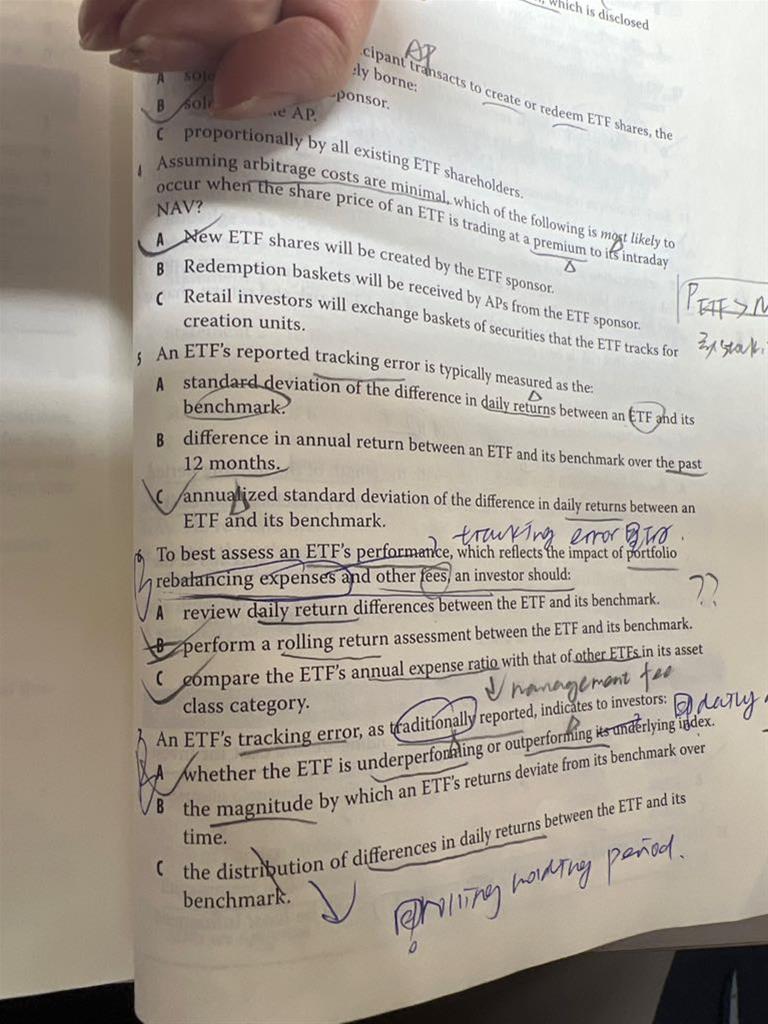 which is disclosed
AP
cipant transacts to create or redeem ETF shares, the
ely borne:
A sole
ponsor.
B sol e AP.
C proportionally by all existing ETF shareholders.
4 Assuming arbitrage costs are minimal, which of the following is most likely to
occur when the share price of an ETF is trading at a premium to its intraday
NAV?
A New ETF shares will be created by the ETF sponsor.
B Redemption baskets will be received by APs from the ETF sponsor.
C Retail investors will exchange baskets of securities that the ETF tracks for
creation units.
P ETF > N
5 An ETF's reported tracking error is typically measured as the:
A standard deviation of the difference in daily returns between an ETF and its
benchmark.
B difference in annual return between an ETF and its benchmark over the past
12 months.
C annualized standard deviation of the difference in daily returns between an
ETF and its benchmark.
tracking error
6 To best assess an ETF's performance, which reflects the impact of portfolio
rebalancing expenses and other fees, an investor should:
??
A review daily return differences between the ETF and its benchmark.
B perform a rolling return assessment between the ETF and its benchmark.
C compare the ETF's annual expense ratio with that of other ETFs in its asset
class category.
management fee
7 An ETF's tracking error, as traditionally reported, indicates to investors:
daily
A whether the ETF is underperforming or outperforming its underlying index.
B the magnitude by which an ETF's returns deviate from its benchmark over
time.
C the distribution of differences in daily returns between the ETF and its
benchmark.
rolling holding period.